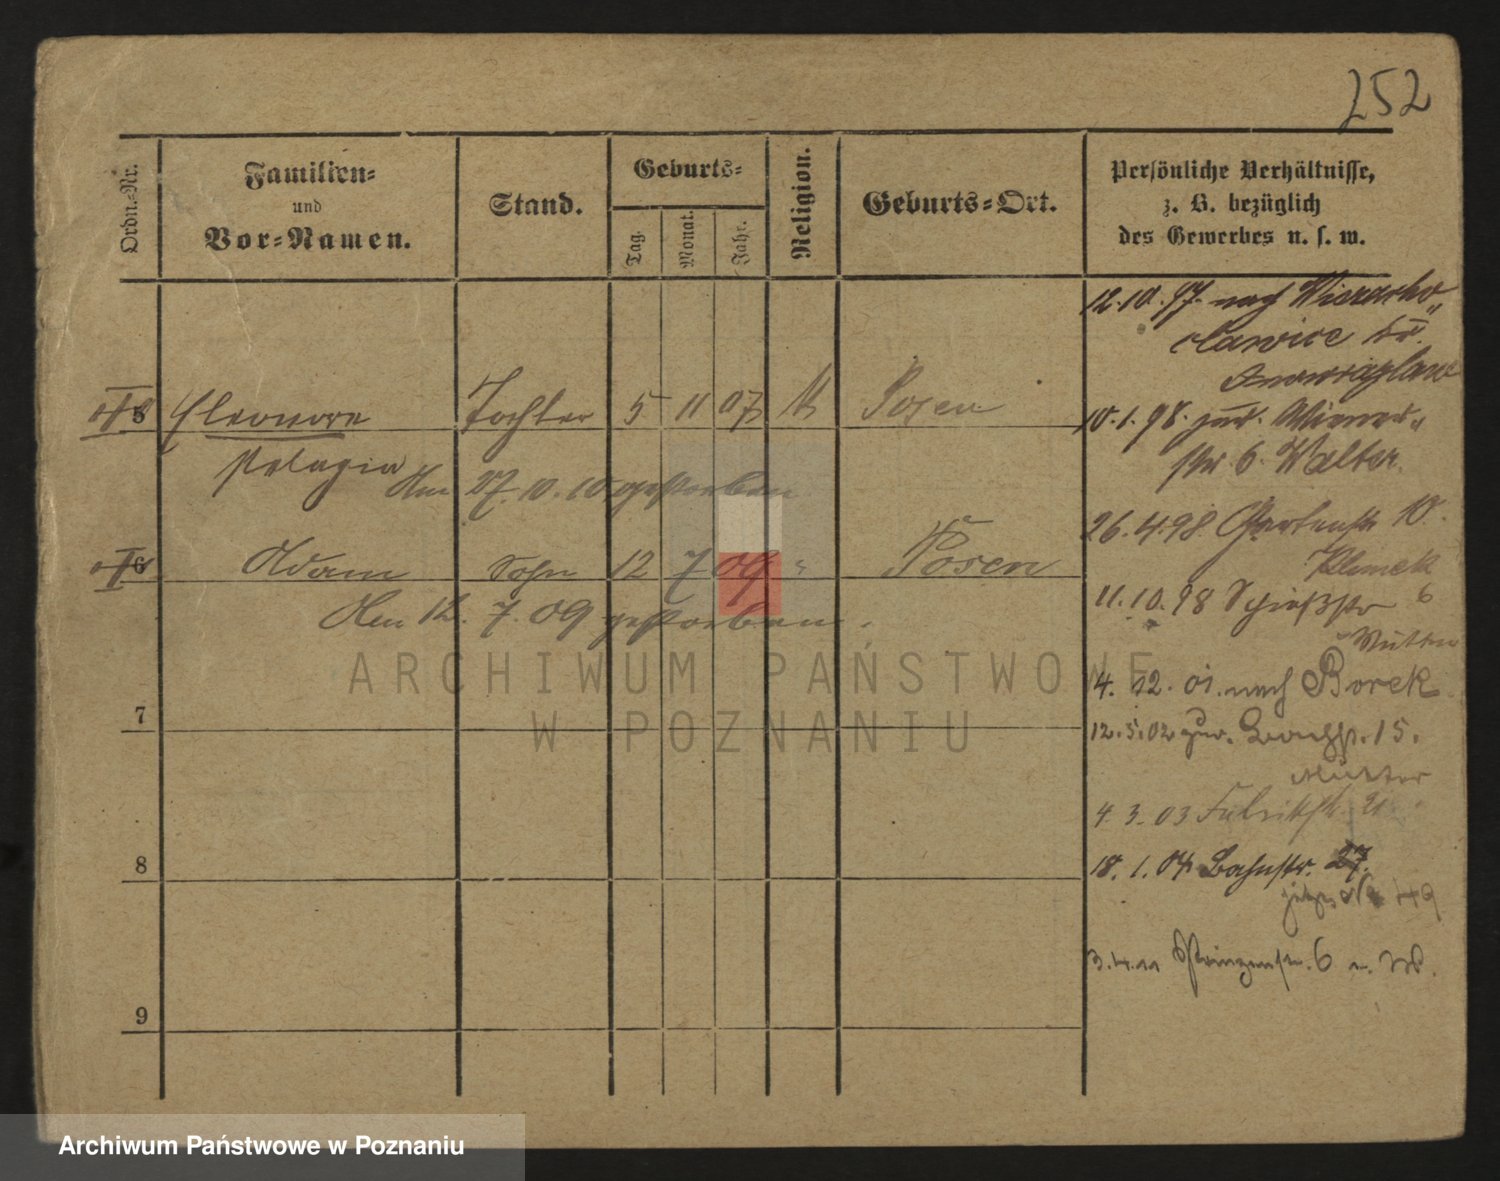 252
Ordn.-Nr.
Familien-
und
Vor-Namen.
Stand.
Geburts-
Tag.
Monat.
Jahr.
Religion.
Geburts-Ort.
Persönliche Verhältnisse,
z. B. bezüglich
des Gewerbes u. s. w.
12.10.97. nach
10.1.98. zur. Wiener-
str. 6. Walter.
26.4.98. Gartenstr 10.
Klimek
11.10.98 Schießstr 6
4. 12. 01. nach Borek
12.5.02 zur. 15.
4. 3. 03 Fabrikstr
18. 1. 04 Bahnstr. 27.
jetzt 49
3.4.11 Prinzenstr. 6
5 Eleonore Tochter 5 11 07 Posen
Pelagia Am 27.10.10 gestorben
6 Adam Sohn 12 7 09 " Posen
Am 12. 7. 09 gestorben.
7
8
9
ARCHIWUM PAŃSTWOWE
W POZNANIU
Archiwum Państwowe w Poznaniu